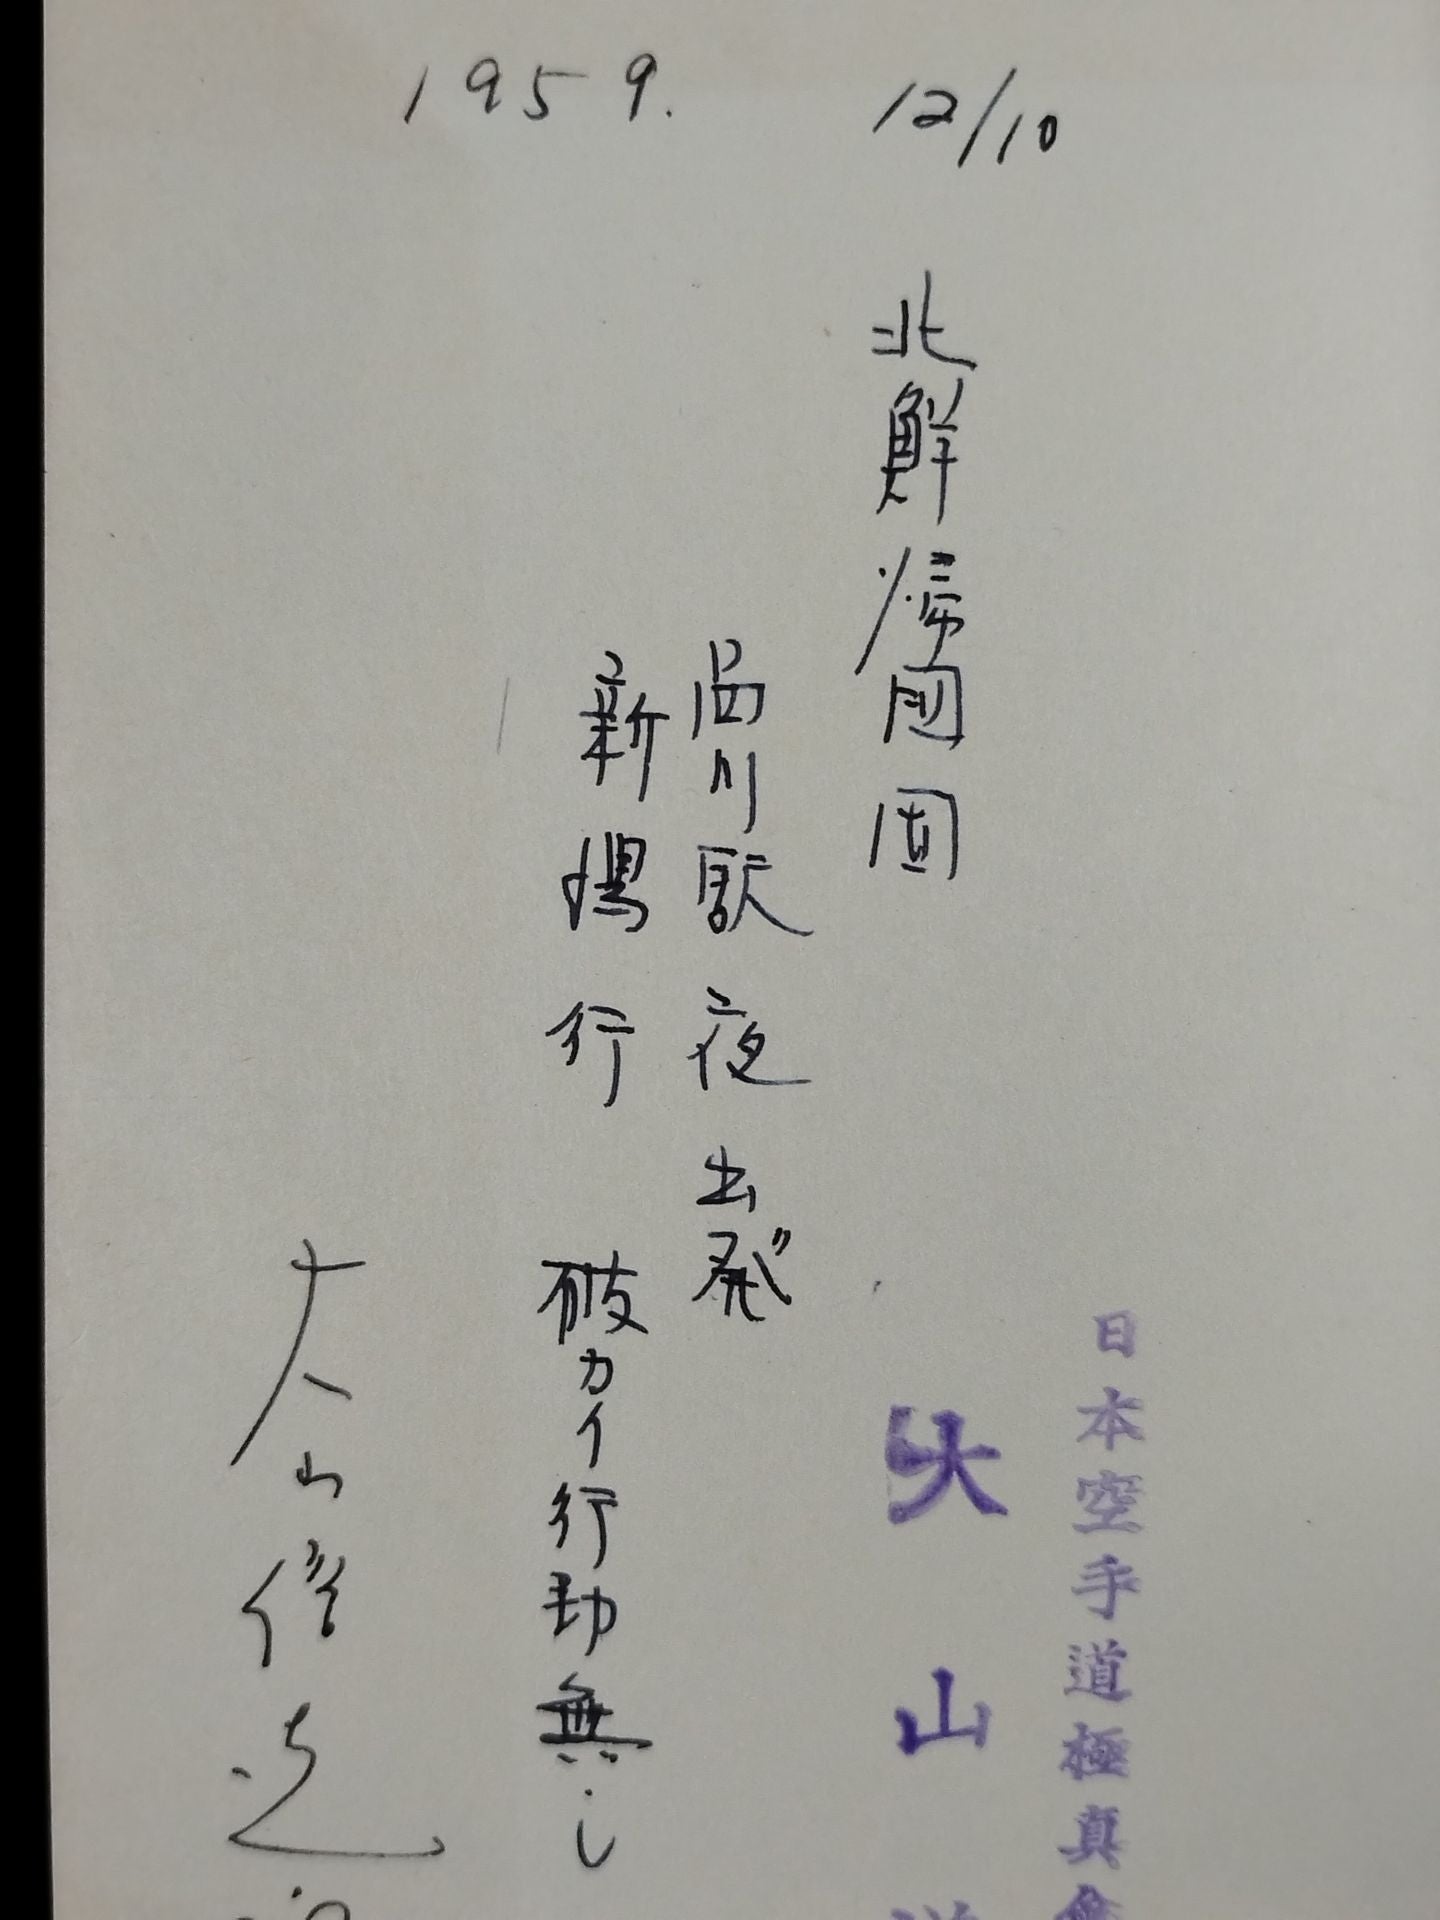 1959. 12/10
北鮮帰国団
品川駅夜出発
新潟行 破カイ行動無し
大山倍達
日本空手道極真會
大山